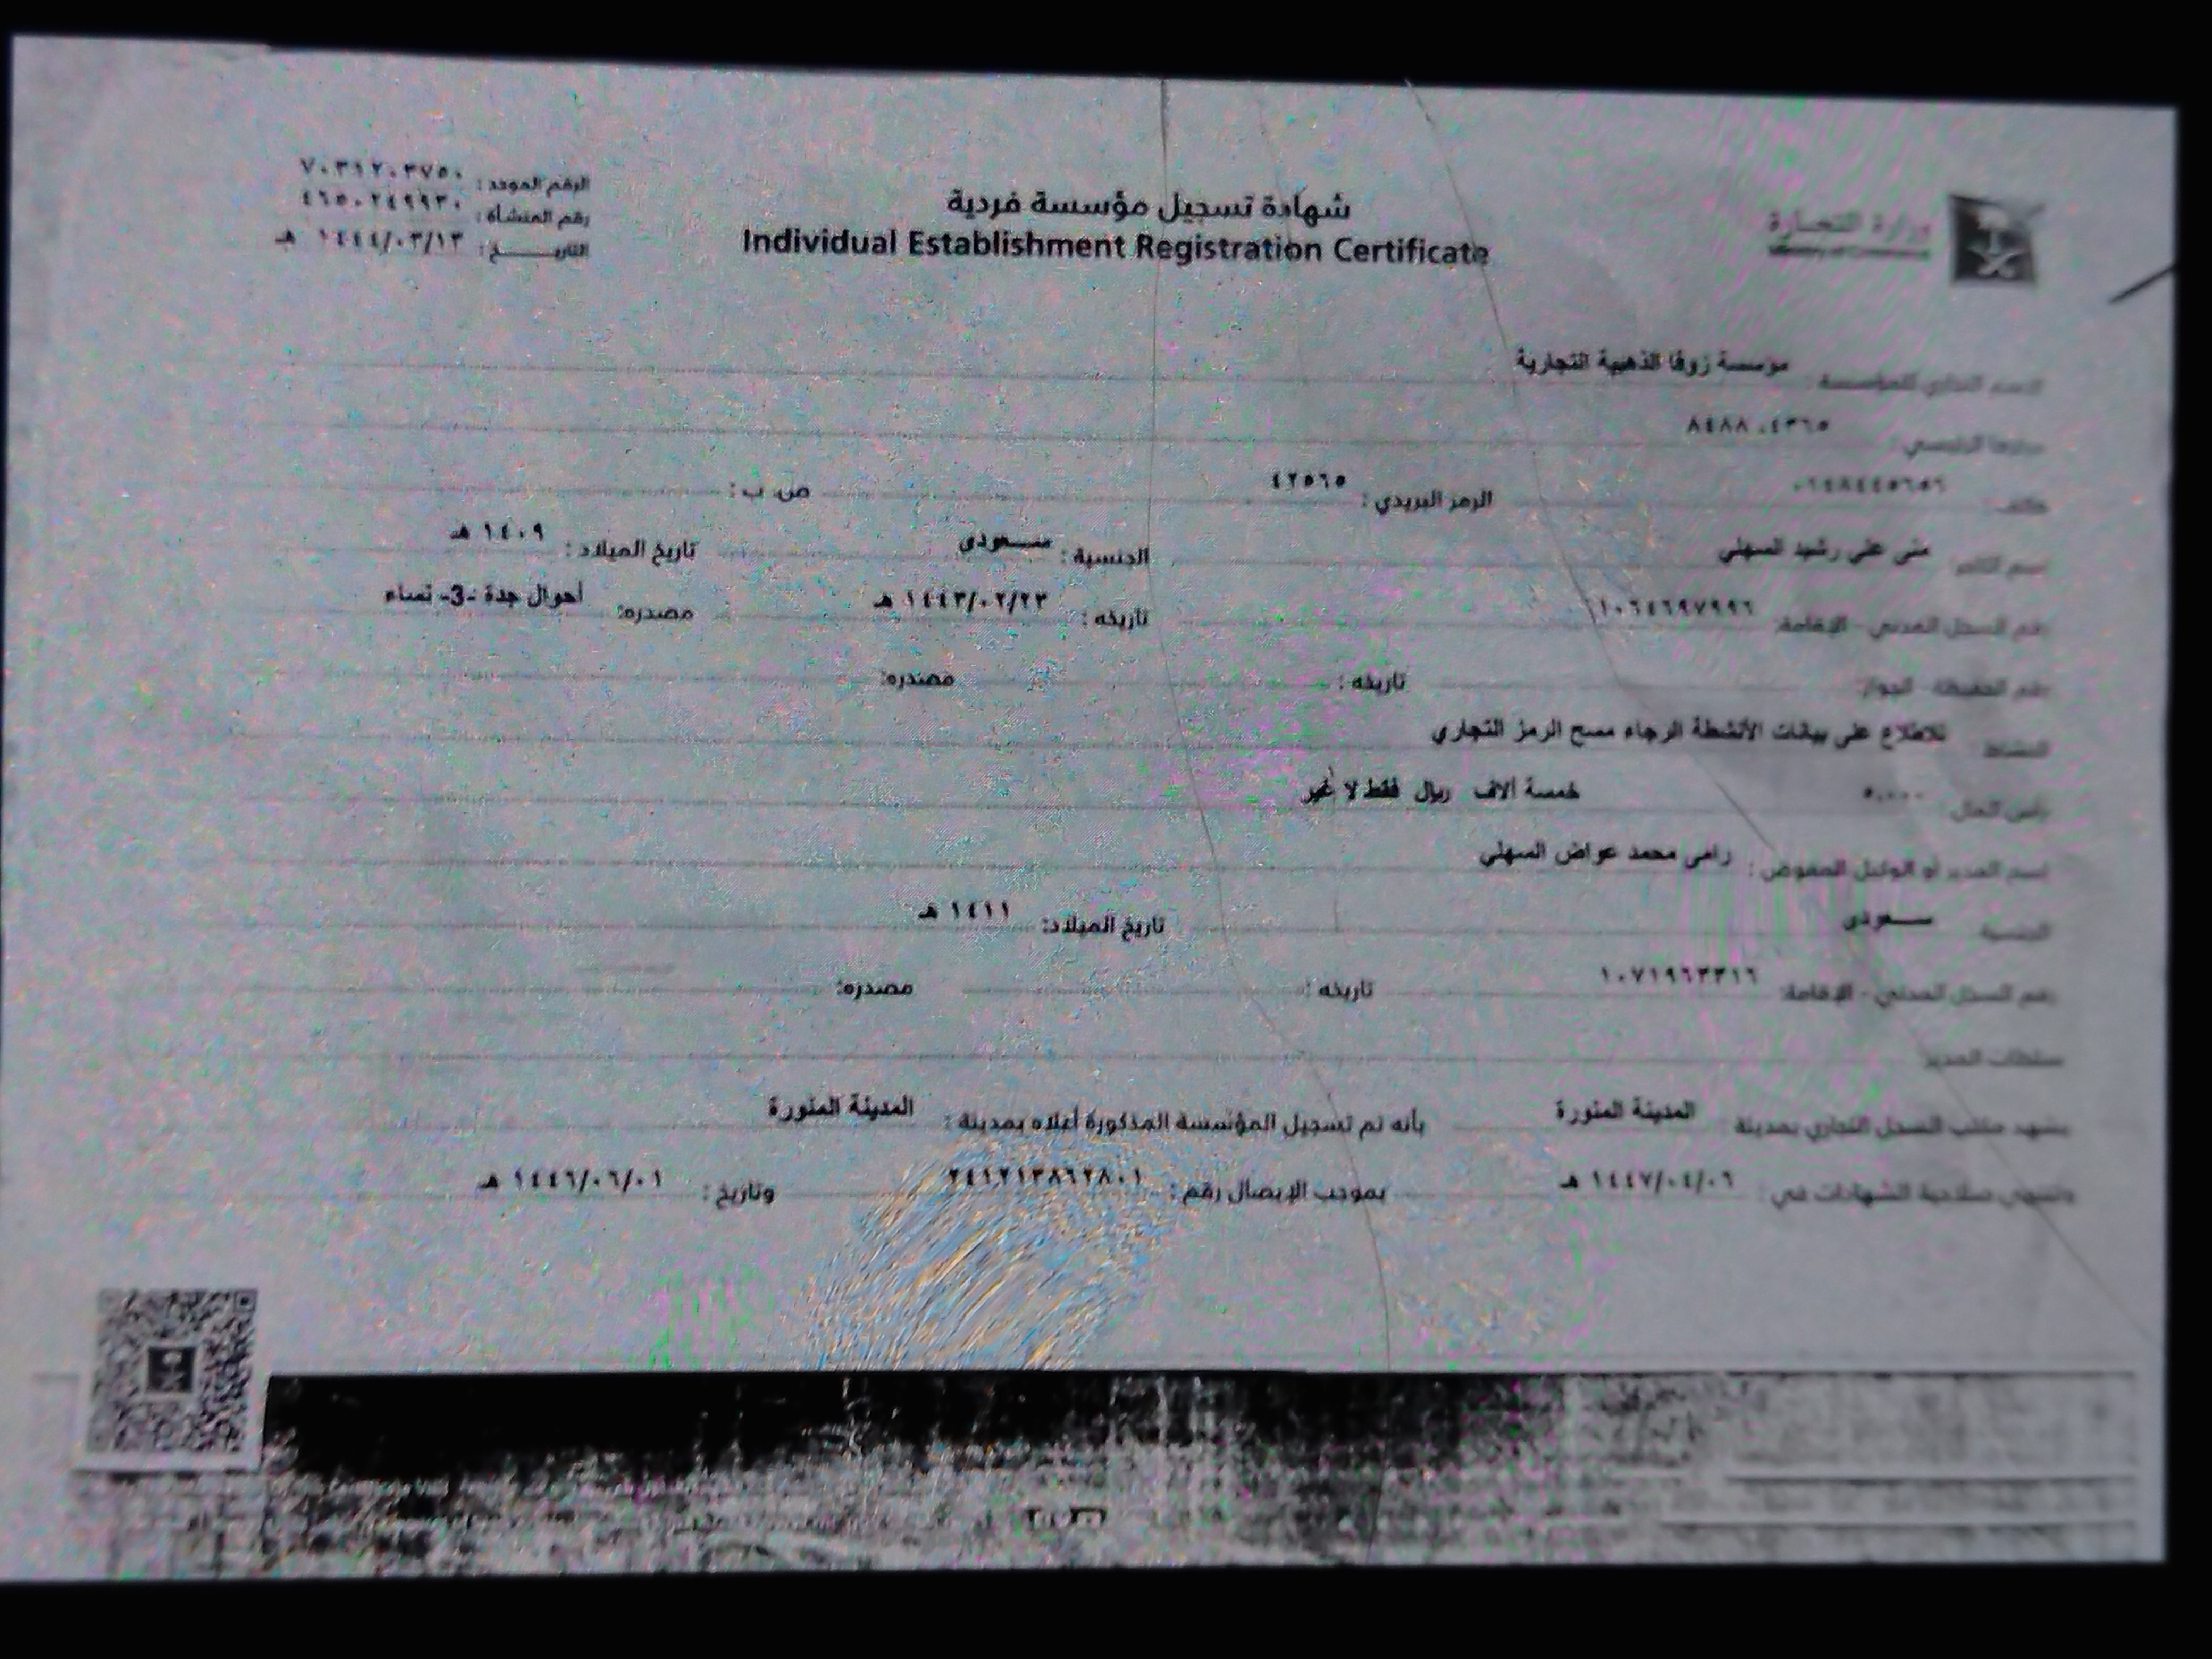 وزارة التجارة
شهادة تسجيل مؤسسة فردية
Individual Establishment Registration Certificate
الرقم الموحد : ٧٠٣١٢٠٣٧٥٠
رقم المنشأة : ٤٦٥٠٢٤٩٩٣٠
التاريخ : ١٤٤٤/٠٣/١٣ هـ
مؤسسة زوفا الذهبية التجارية
الرمز البريدي : ٤٢٥٦٥ ص. ب :
منى على رشيد السهلي الجنسية : سعودي تاريخ الميلاد : ١٤٠٩ هـ
رقم السجل المدني - الإقامة: ١٠٦٤٦٩٧٩٩٦ تاريخه : ١٤٤٣/٠٢/٢٣ هـ مصدره: أحوال جدة -3- نساء
تاريخه : مصدره:
النشاط للاطلاع على بيانات الأنشطة الرجاء مسح الرمز التجاري
رأس المال ٥,٠٠٠ خمسة آلاف ريال فقط لا غير
اسم المدير أو الوكيل المفوض : رامى محمد عواض السهلي
الجنسية سعودى تاريخ الميلاد: ١٤١١ هـ
رقم السجل المدني - الإقامة: ١٠٧١٩٦٣٣١٦ تاريخه : مصدره:
سلطات المدير
يشهد مكتب السجل التجاري بمدينة المدينة المنورة بأنه تم تسجيل المؤسسة المذكورة أعلاه بمدينة : المدينة المنورة
وتنتهي صلاحية الشهادات في : ١٤٤٧/٠٤/٠٦ هـ بموجب الإيصال رقم : ٢٤١٢١٣٨٦٢٨٠١ وتاريخ : ١٤٤٦/٠٦/٠١ هـ